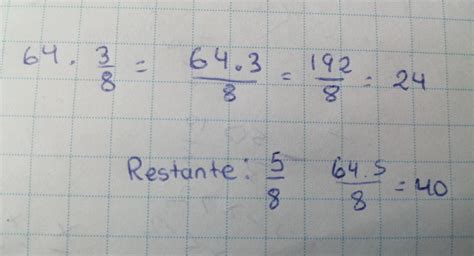 64 · 3/8 = 64·3/8 = 192/8 = 24
Restante: 5/8 64.5/8 = 40